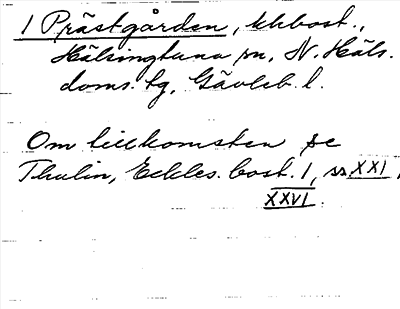 1 Prästgården, khbost.,
Hälsingtuna sn, N. Häls.
doms. tg, Gävleb. l.
Om tillkomsten se
Thulin, Eckles. bost. 1, ss XXI,
XXVI.